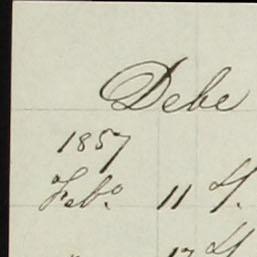 Debe
1857
Feb.º 11
17